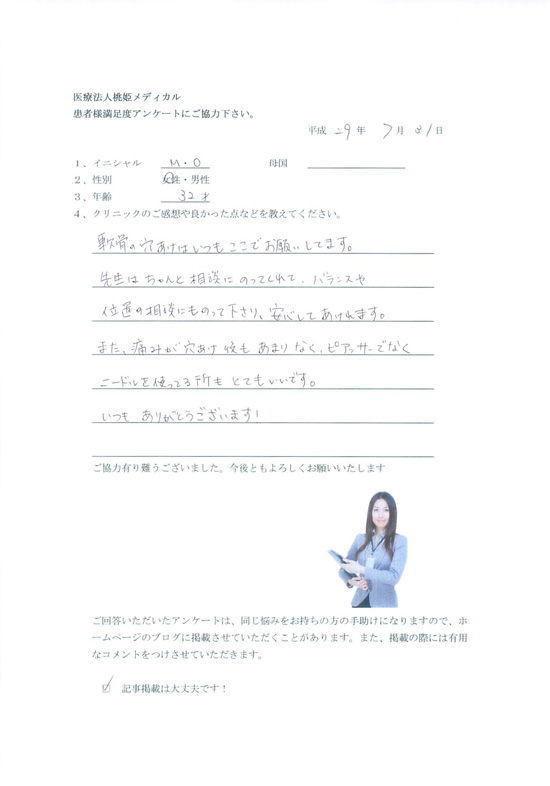 医療法人桃姫メディカル
患者様満足度アンケートにご協力下さい。
平成 29 年 7 月 31 日
1、イニシャル M・O 母国
2、性別 女性・男性
3、年齢 32才
4、クリニックのご感想や良かった点などを教えてください。
軟骨の穴あけはいつもここでお願いしてます。
先生はちゃんと相談にのってくれて、バランスや
位置の相談にものって下さり、安心してあけれます。
また、痛みが穴あけ後もあまりなく、ピアッサーでなく
ニードルを使ってる所もとてもいいです。
いつもありがとうございます!
ご協力有り難うございました。今後ともよろしくお願いいたします
ご回答いただいたアンケートは、同じ悩みをお持ちの方の手助けになりますので、ホ
ームページのブログに掲載させていただくことがあります。また、掲載の際には有用
なコメントをつけさせていただきます。
☑ 記事掲載は大丈夫です!